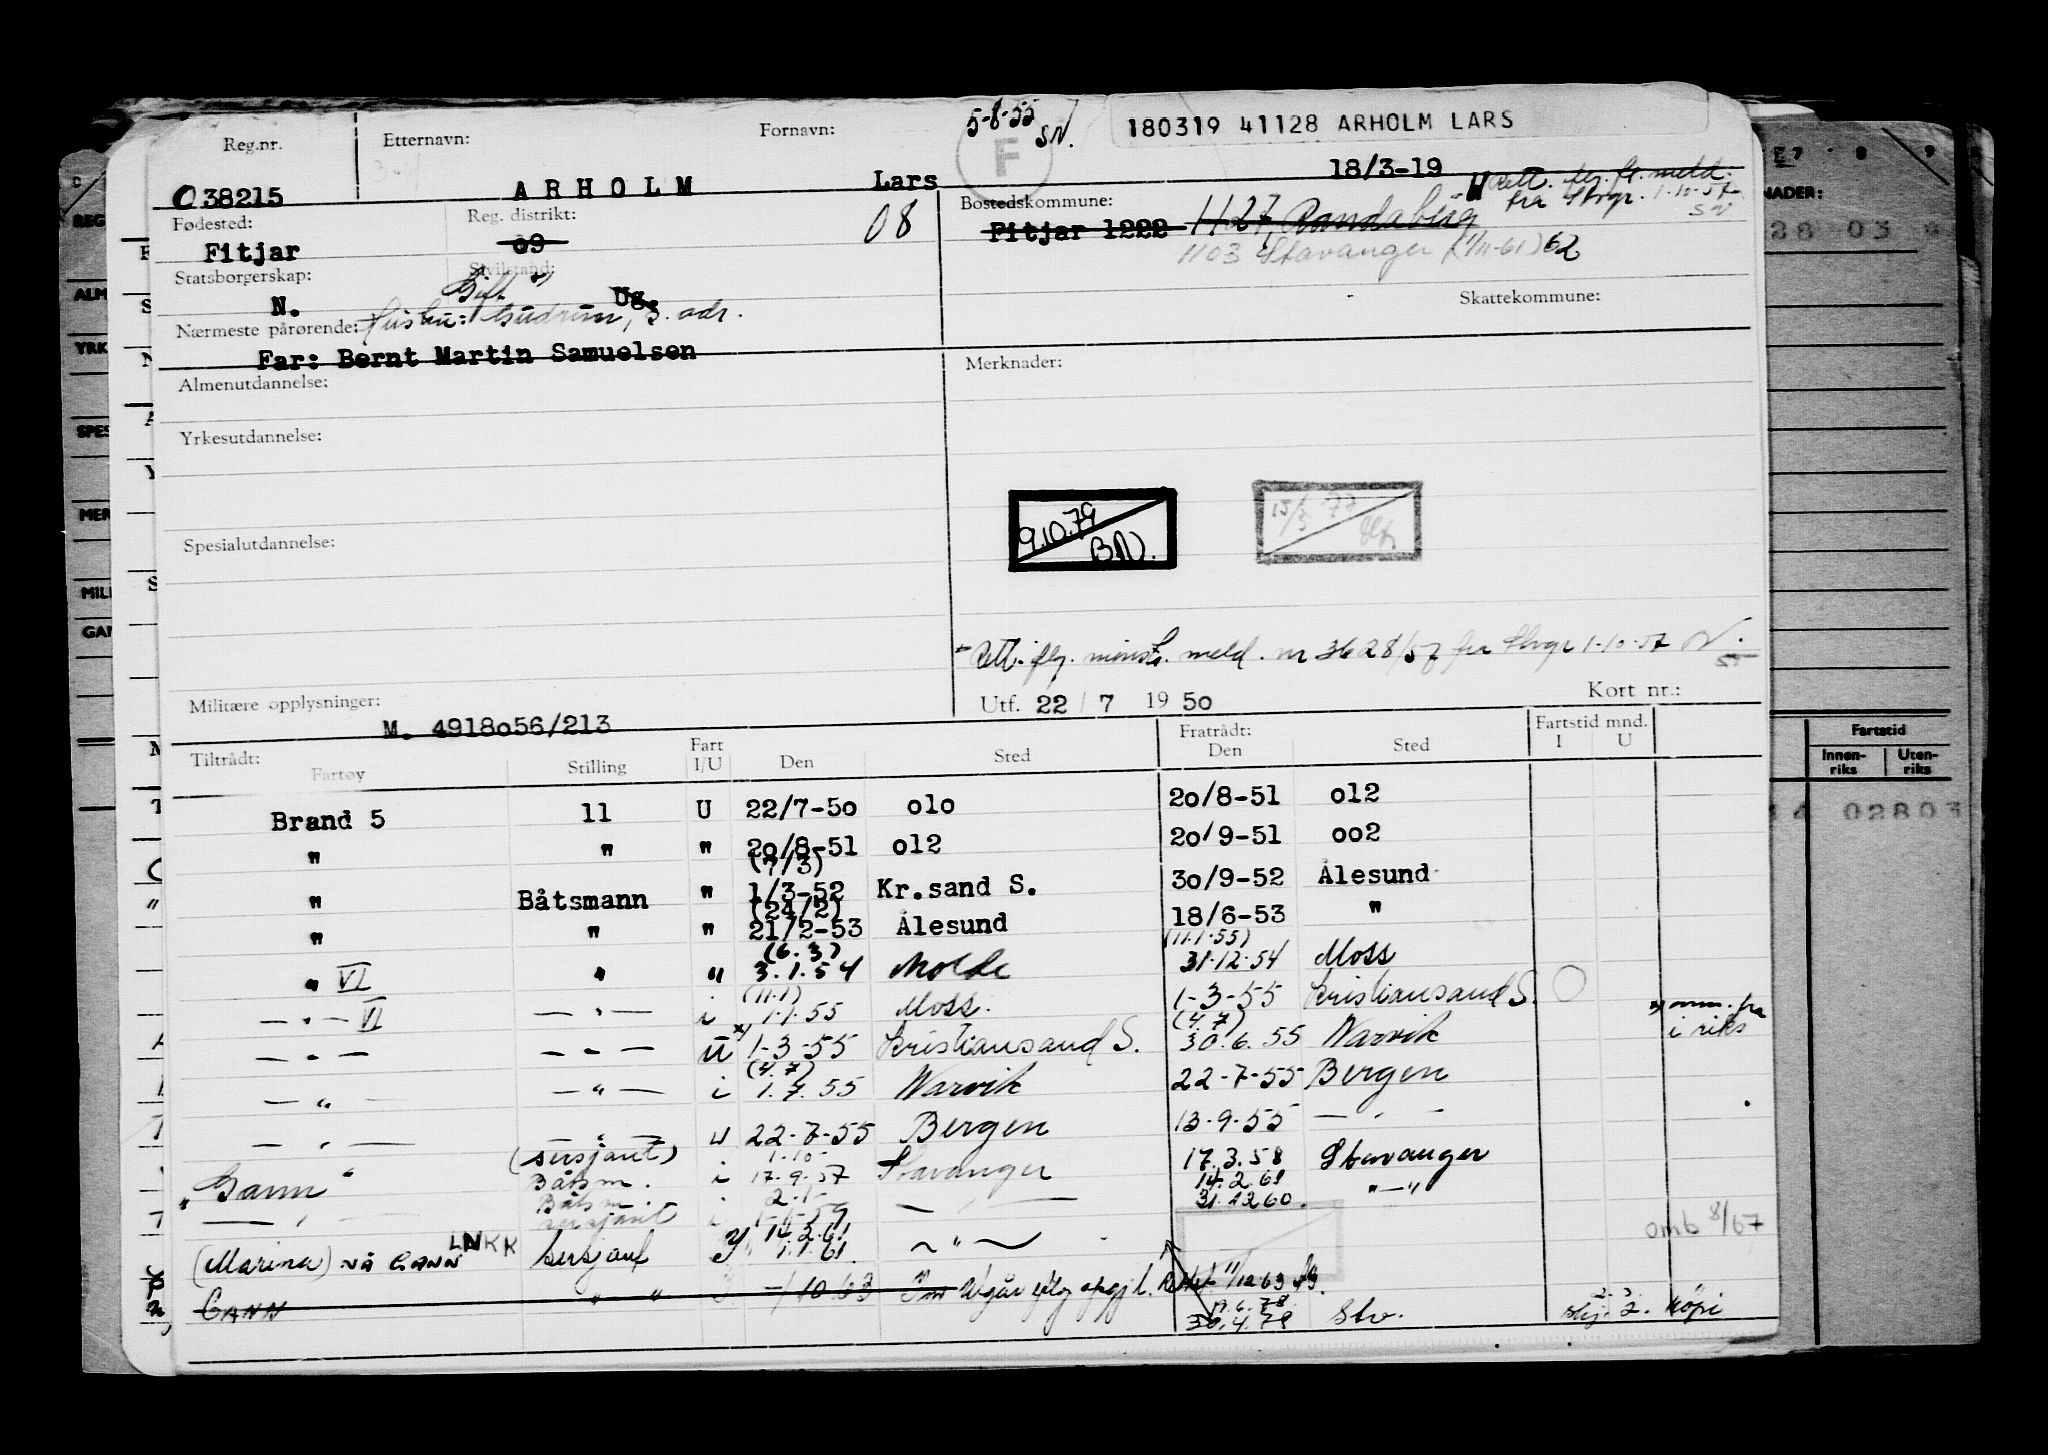 5-8-55
SN.
180319 41128 ARHOLM LARS
Reg.nr. Etternavn: Fornavn: F
18/3-19
038215 ARHOLM Lars
Rett. flg. fl. meld. fra Stvgr. 1-10-57 SN
Fødested: Reg. distrikt: 08 Bostedskommune:
Fitjar 09 Fitjar 1222 1127 Randaberg
1103 Stavanger (1/11-61) 62
Statsborgerskap: Sivilstand:
N. Gift Ug.
Skattekommune:
Nærmeste pårørende: Hustru: Gudrun, s. adr.
Far: Bernt Martin Samuelsen
Almenutdannelse: Merknader:
Yrkesutdannelse:
9.10.79 BN. 15/3 77
Spesialutdannelse:
Rett. flg. mønst. meld. nr 3628/57 fra Stvgr 1-10-57
Militære opplysninger: Utf. 22 / 7 19 50 Kort nr.:
M. 4918056/213
Tiltrådt: Fratrådt: Fartstid mnd.
Fartøy Stilling Fart I/U Den Sted Den Sted I U
Brand 5 11 U 22/7-50 010 20/8-51 012
" " " 20/8-51 012 20/9-51 002
(7/3)
" Båtsmann " 1/3-52 Kr.sand S. 30/9-52 Ålesund
(24/2)
" " " 21/2-53 Ålesund 18/6-53 "
(6.3) (11.1.55)
" VI " " 3.1.54 Molde 31.12.54 Moss
(11.1)
— " — VI — " — i 1.1.55 Moss. 1-3-55 Kristiansand S.
x) (4.7) x) omm. fra i riks
— " — — " — U 1-3-55 Kristiansand S. 30.6.55 Narvik
(4.7)
— " — — " — i 1.7.55 Narvik 22-7-55 Bergen
— " — — " — u 22-7-55 Bergen 13-9-55 — " —
(sersjant) 1.10
"Gann" Båtsm. i 17.9.57 Stavanger 17.3.58 Stavanger
Båtsm. 2.1 14.2.61
— " — sersjant i 1-1-59 — " — 31.12.60. " — "
omb 8/67
LNKK 14.2.61
(Marina) nå GANN sersjant 1.1.61 ~ " ~
GANN " " 1/10 63 Utgår iflg oppgj l. Rettet 11/12.63
30.4.79 Stv. 2. Köpi
Fartstid
Innen-riks Uten-riks
02803